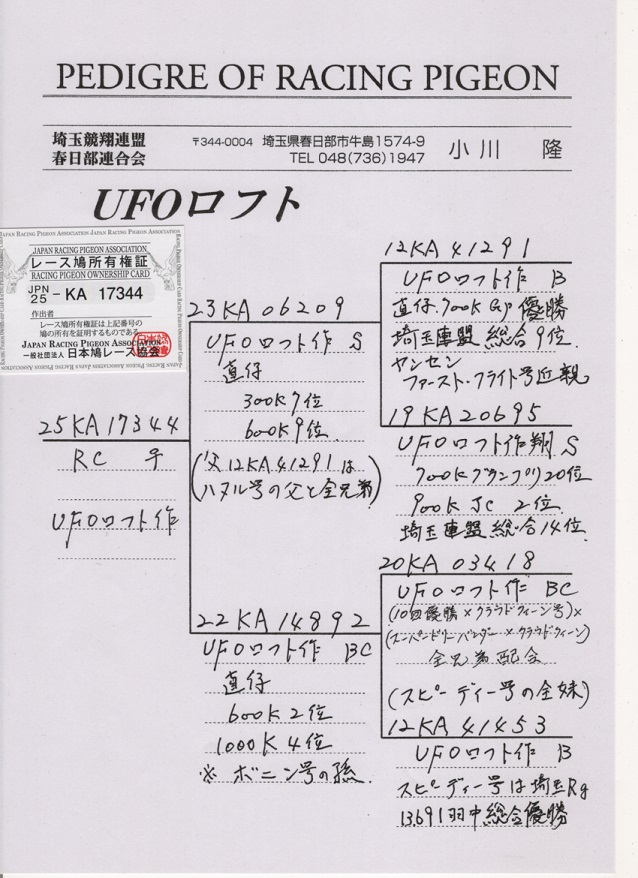 PEDIGRE OF RACING PIGEON
埼玉競翔連盟
春日部連合会
〒344-0004 埼玉県春日部市牛島1574-9
TEL 048(736)1947
小川 隆
UFOロフト
JAPAN RACING PIGEON ASSOCIATION
レース鳩所有権証
RACING PIGEON OWNERSHIP CARD
JPN
25 - KA 17344
作出者
レース鳩所有権証は上記番号の
鳩の所有を証明するものである
JAPAN RACING PIGEON ASSOCIATION
一般社団法人 日本鳩レース協会
25KA17344
RC 子
UFOロフト作
23KA06209
UFOロフト作 S
直仔
300K7位
600K9位
(父12KA41291は
ハヌル号の父と全兄弟)
22KA14892
UFOロフト作 BC
直仔
600K2位
1000K4位
※ ボニン号の孫.
12KA41291
UFOロフト作 B
直仔700K Gp 優勝
埼玉連盟 総合9位
ヤンセン
ファースト・フライト号近親
19KA20695
UFOロフト作翔 S
700Kグランプリ20位
900K JC 2位.
埼玉連盟 総合14位.
20KA03418
UFOロフト作 BC
(10回優勝×クラウドウィーン号)×
×クラウドクィーン)
全兄弟配合
(スピーディー号の全妹)
12KA41453
UFOロフト作 B
スピーディー号は埼玉Rg
13,691羽中総合優勝